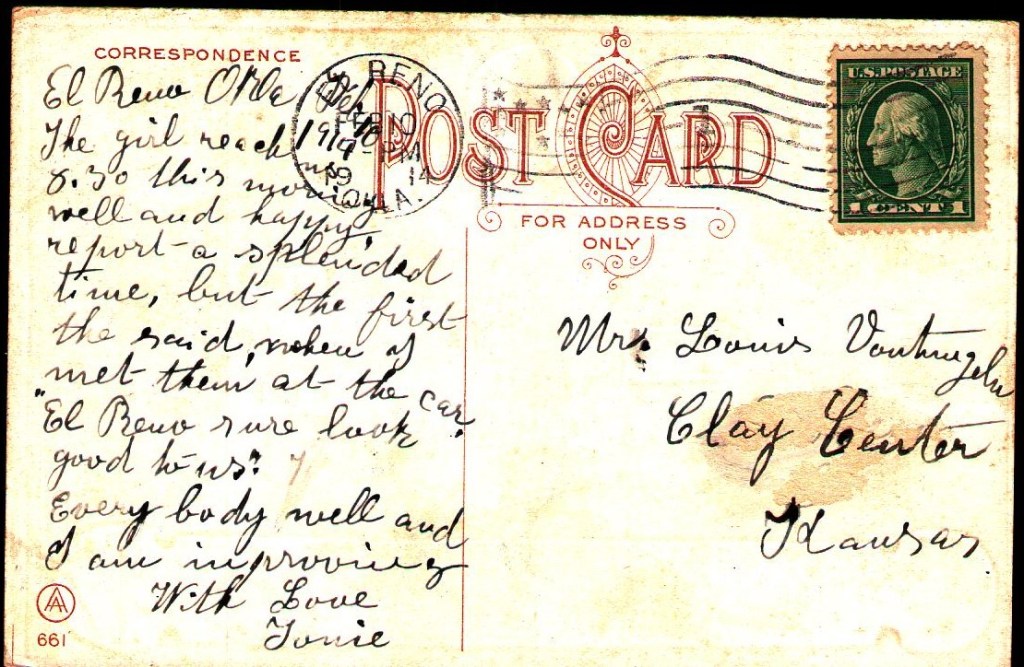 CORRESPONDENCE
El Reno Okla Feb 10
The girl reach 1914
8.30 this morning
well and happy
report a splendad
time, but the first
the said, when I
met them at the car.
"El Reno sure look
good to us"
Every body well and
I am improoving
With Love
Tonie
AA
661
EL RENO
FEB 10
9-PM
19 14
OKLA.
POST CARD
FOR ADDRESS
ONLY
U.S. POSTAGE
1 CENT 1
Mr. Louis
Clay Center
Kansas